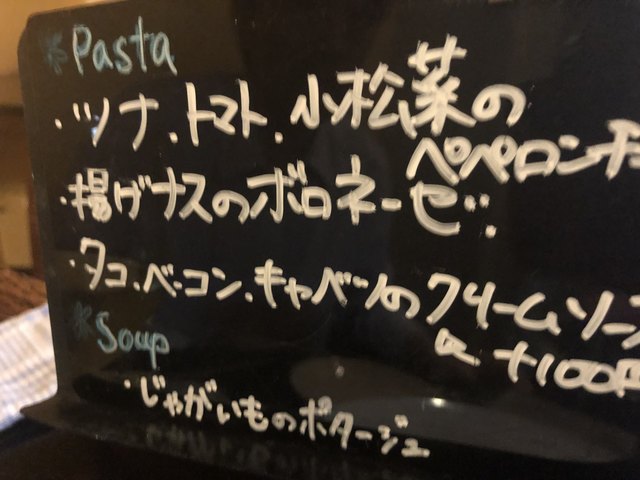 *Pasta
・ツナ、トマト、小松菜の
ペペロンチ
・揚げナスのボロネーゼ
・タコ、ベーコン、キャベツのクリームソー
+100円
*Soup
・じゃがいものポタージュ